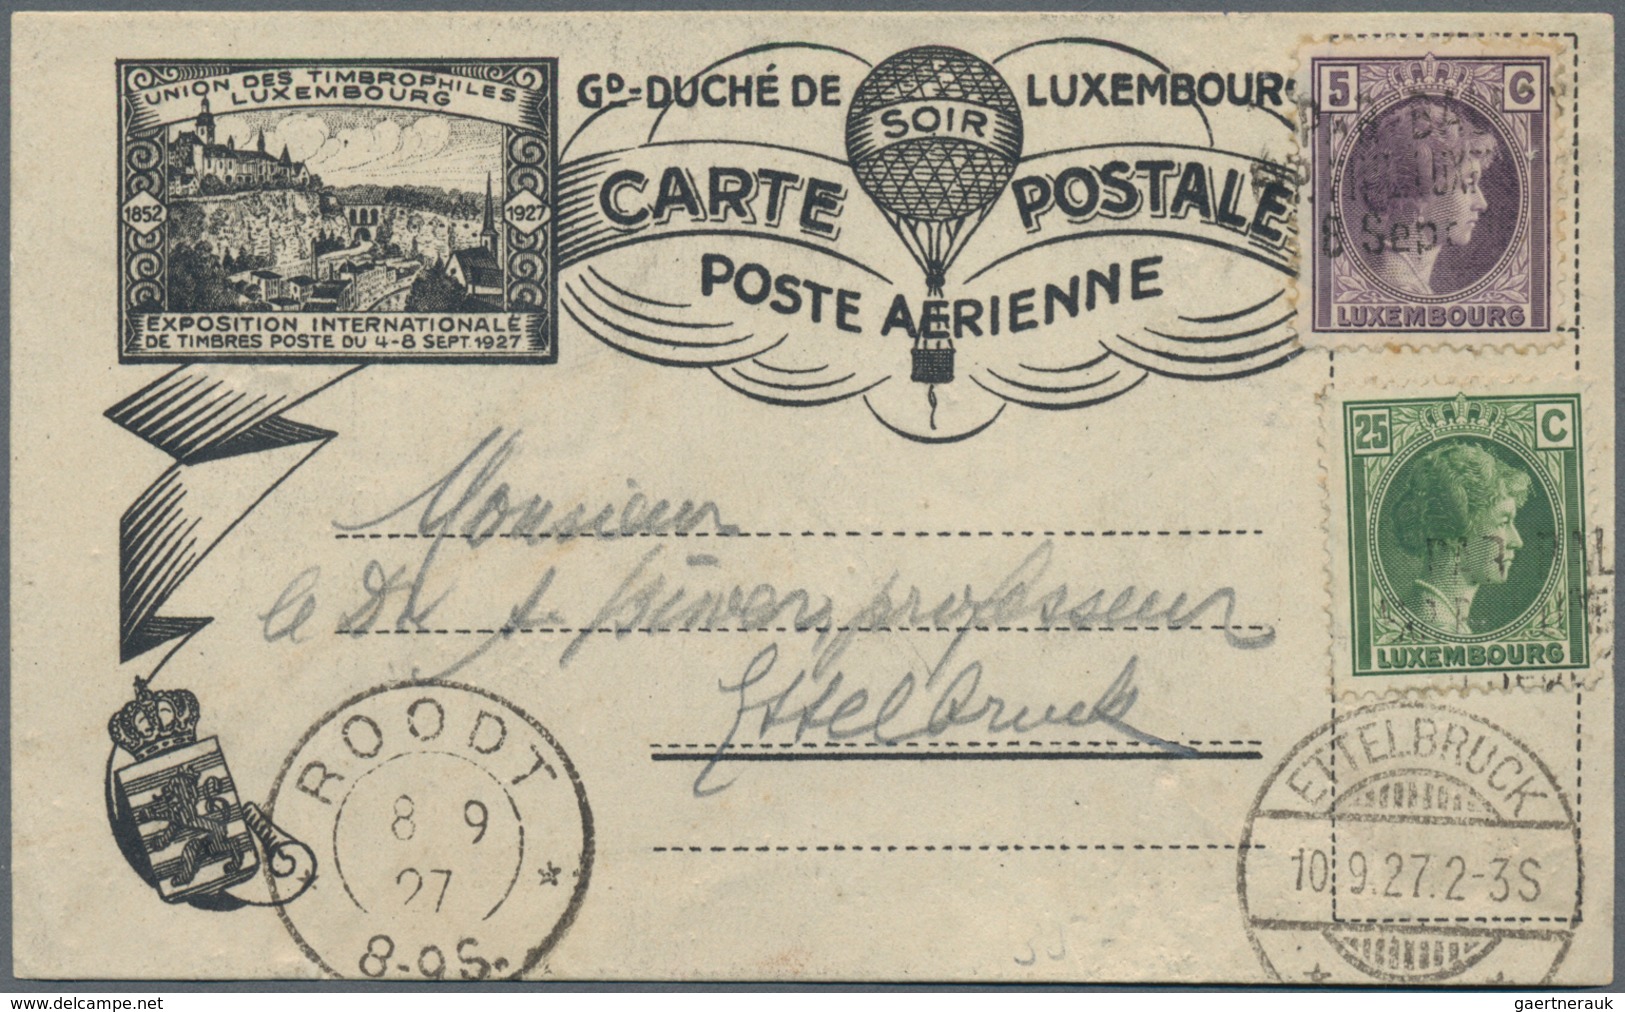 UNION DES TIMBROPHILES
LUXEMBOURG
1852
1927
EXPOSITION INTERNATIONALE
DE TIMBRES POSTE DU 4-8 SEPT. 1927
GD-DUCHÉ DE LUXEMBOURG
SOIR
CARTE POSTALE
POSTE AÉRIENNE
5 C
8 Sept
LUXEMBOURG
25 C
PAR
LUXEMBOURG
Monsieur
le Dr professeur
Ettelbruck
ROODT
8 9
27
8-9S.
ETTELBRUCK
10.9.27.2-3S
delcampe.net
gaertnerauk